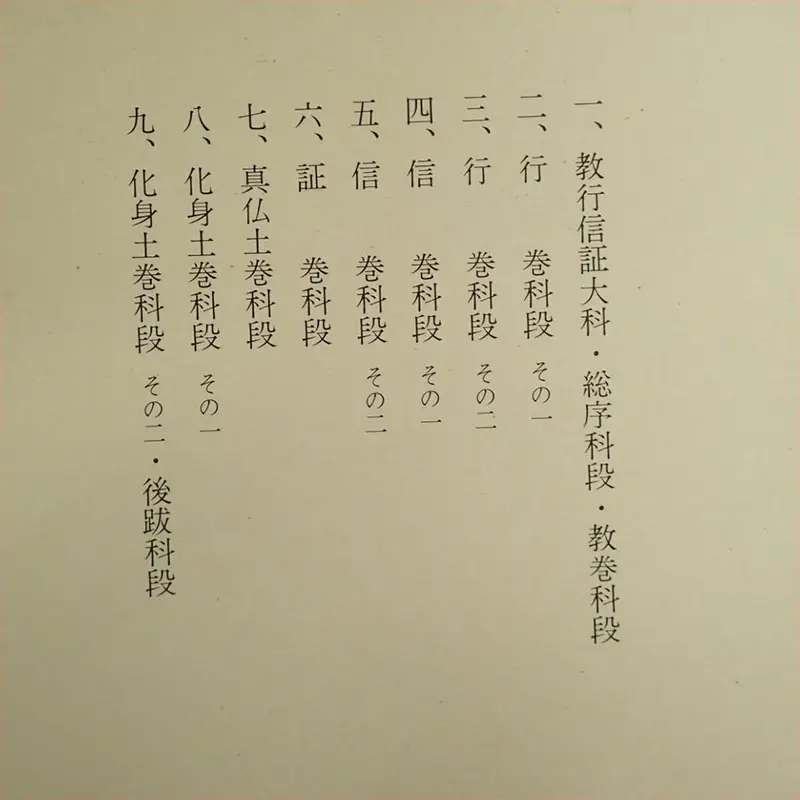 一、教行信証大科・総序科段・教巻科段
二、行　巻科段　その一
三、行　巻科段　その二
四、信　巻科段　その一
五、信　巻科段　その二
六、証　巻科段
七、真仏土巻科段
八、化身土巻科段　その一
九、化身土巻科段　その二・後跋科段